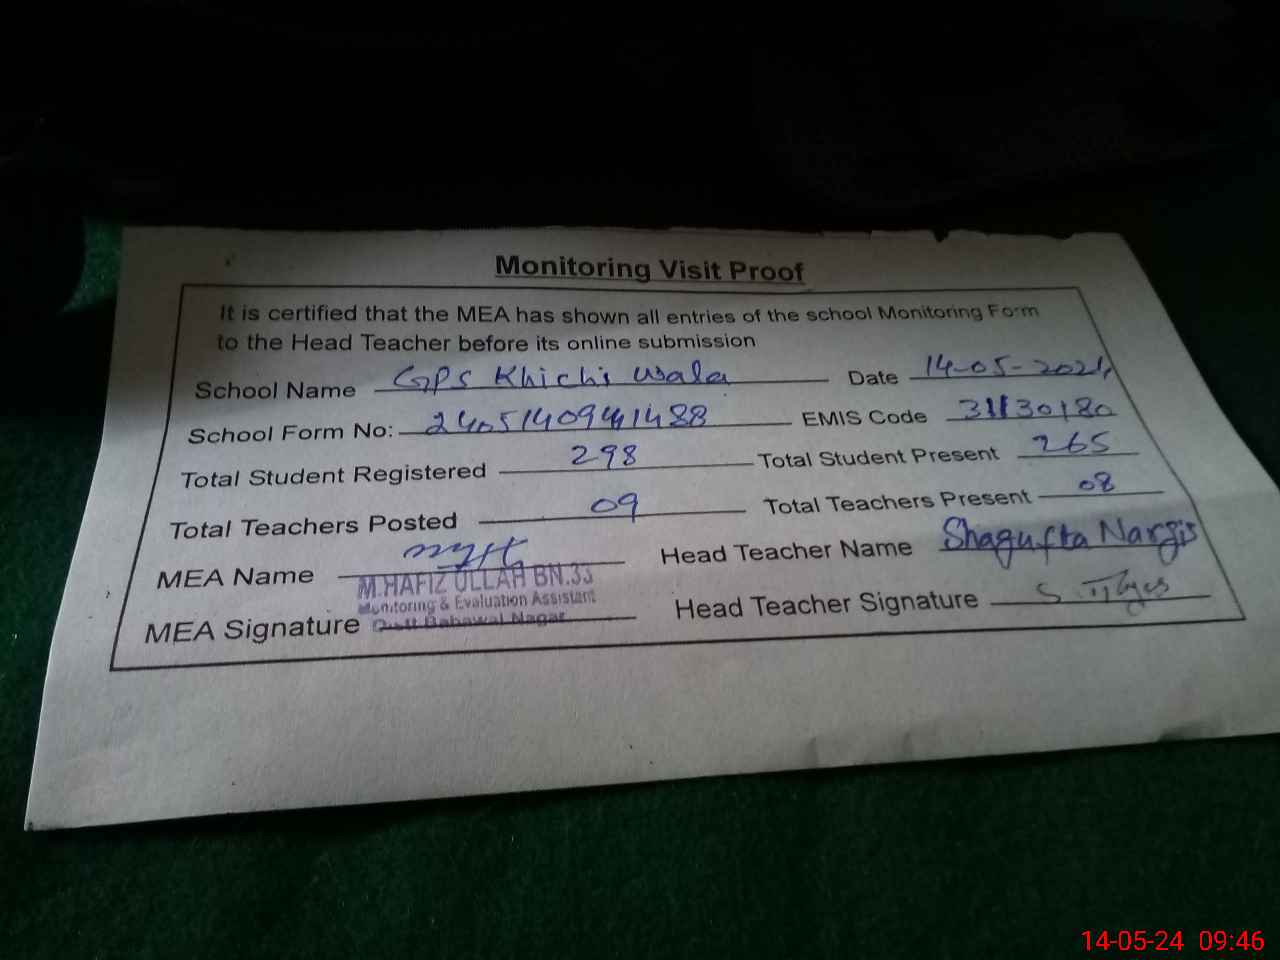 Monitoring Visit Proof
It is certified that the MEA has shown all entries of the school Monitoring Form
to the Head Teacher before its online submission
School Name GPS Khichi wala Date 14-05-2024
School Form No: EMIS Code 31130180
Total Student Registered 298 Total Student Present 265
Total Teachers Posted 09 Total Teachers Present 08
MEA Name Head Teacher Name Shagufta Nargis
M.HAFIZ ULLAH BN.33
Monitoring & Evaluation Assistant
MEA Signature Distt Bahawal Nagar Head Teacher Signature
14-05-24 09:46